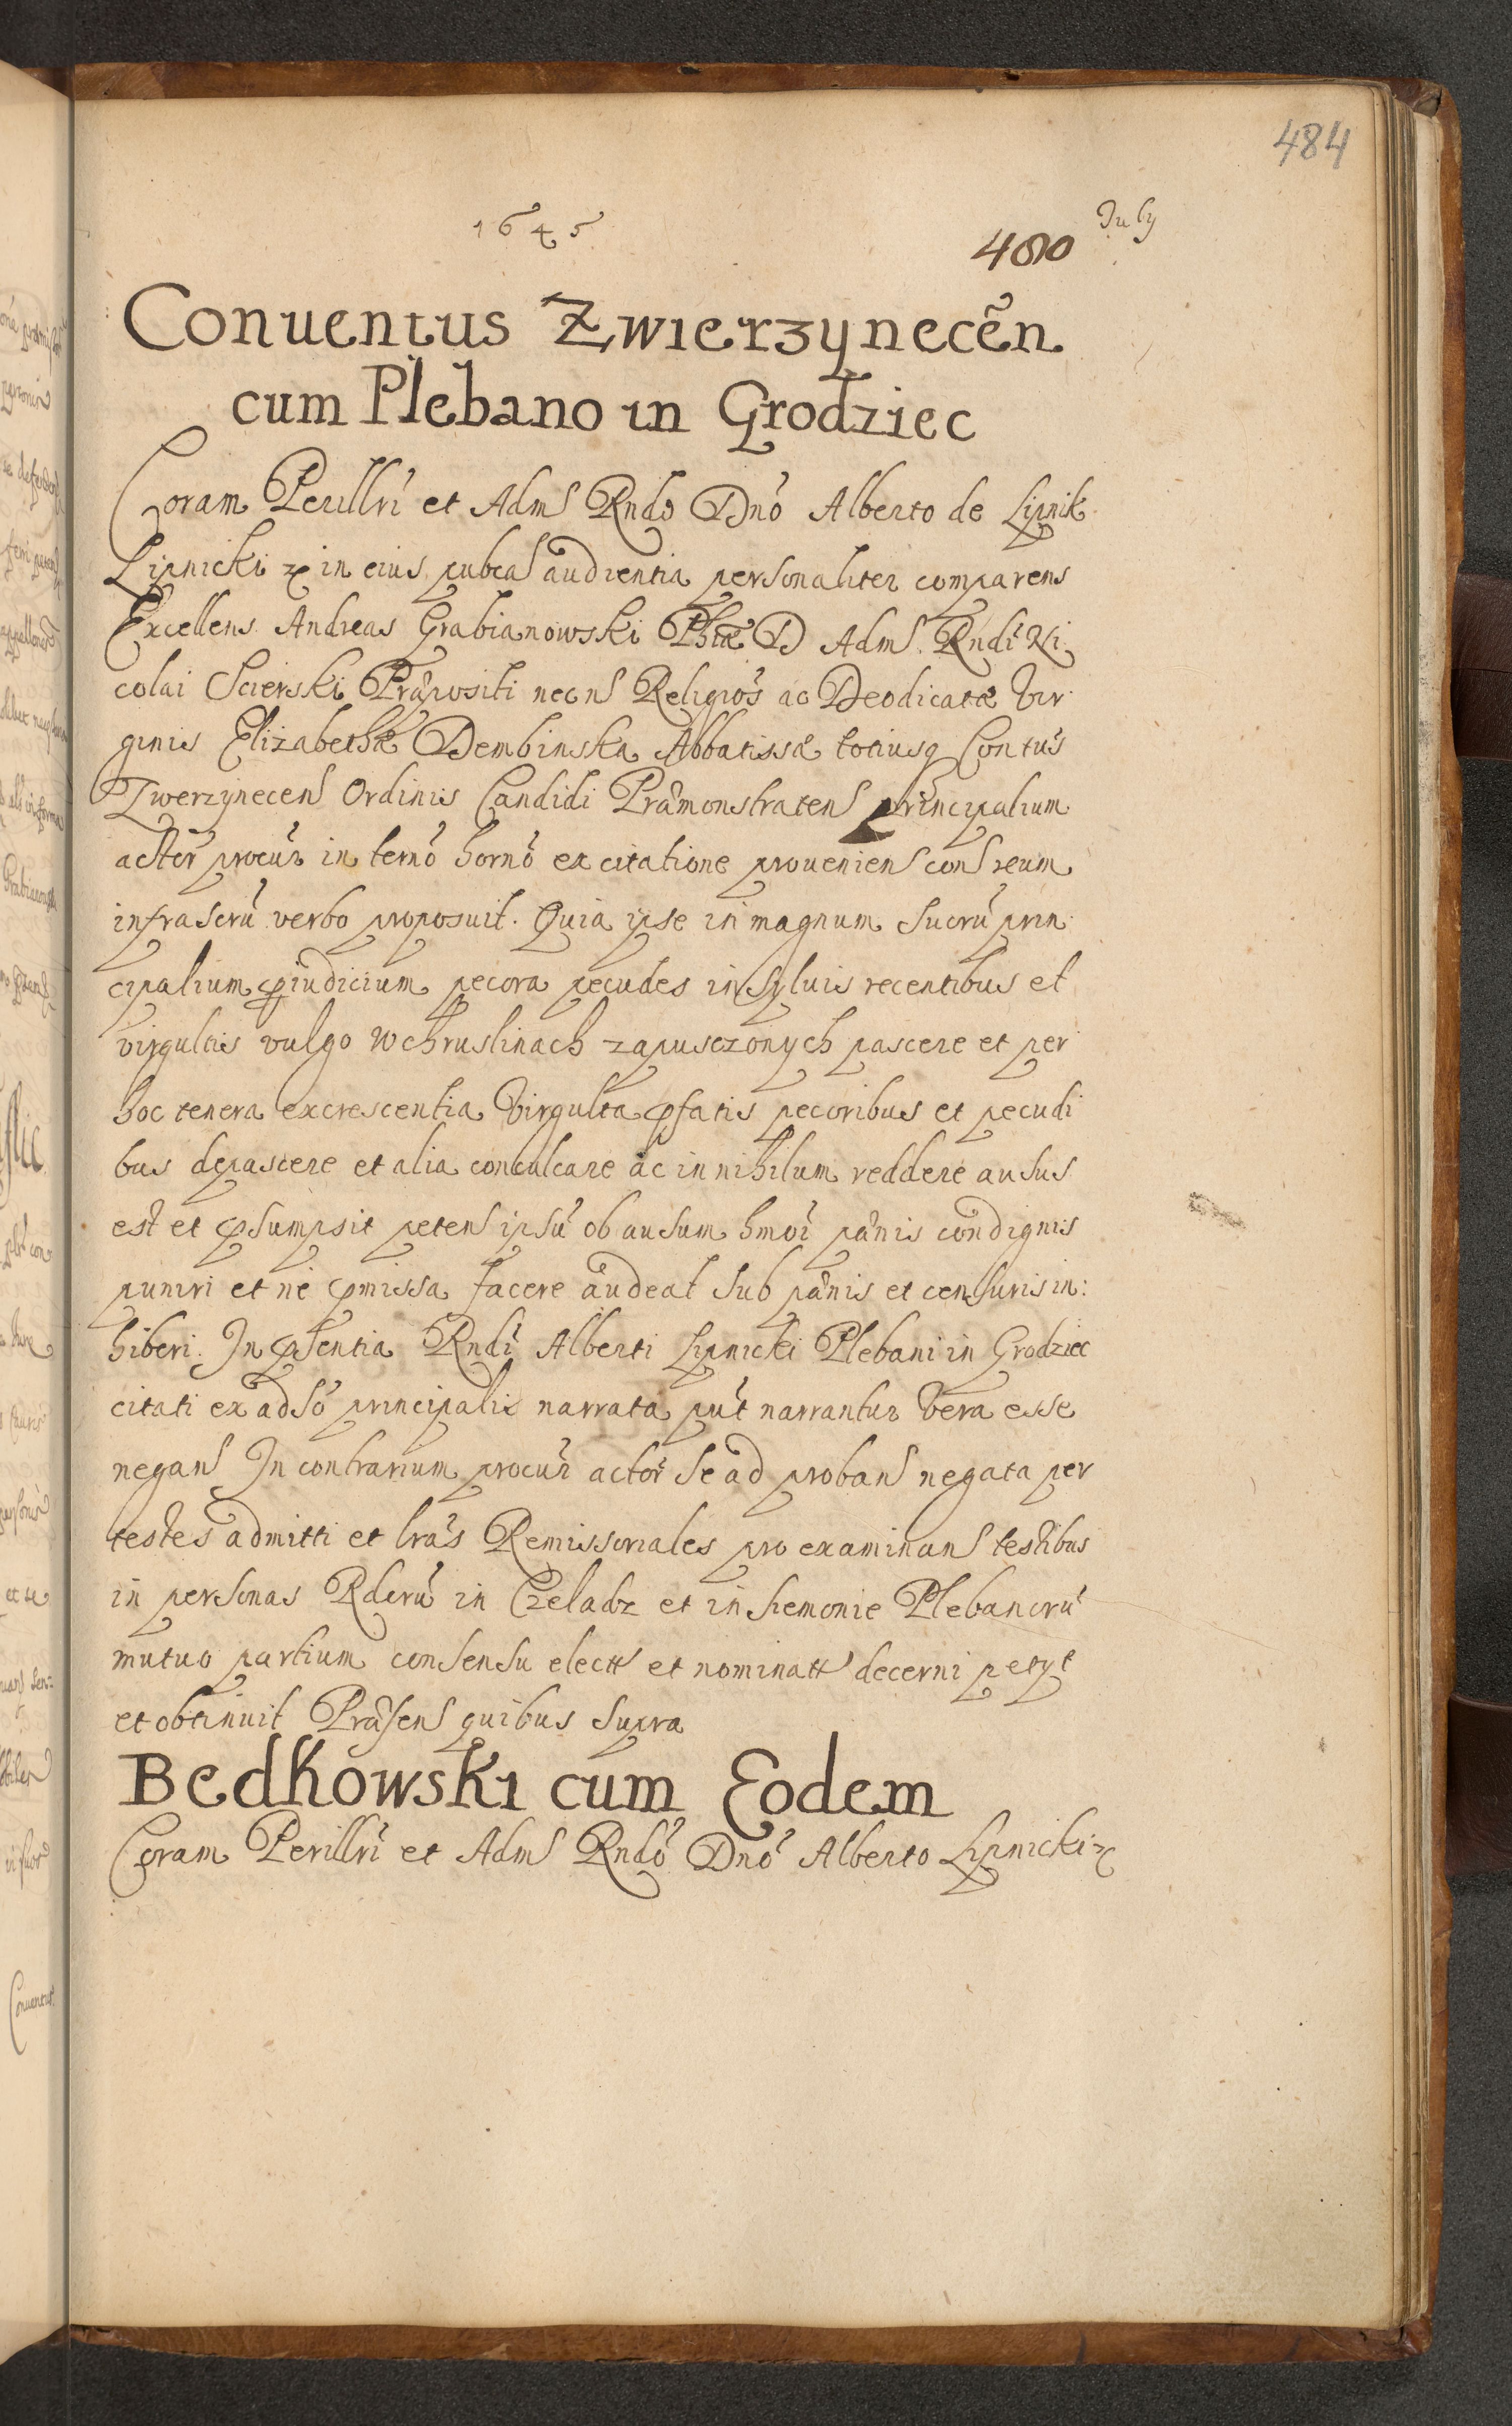 484
1645
July
480
Conuentus Zwierzynecẽn
cum Plebano in Grodziec
Coram Perillri et Adms Rndo Dno Alberto de Lipnik
Lipnicki in eius pubca audientia personaliter comparens
Excellens Andreas Grabianowski Phiæ D Adms Rndi Ni
colai Scierski Præpositi necns Religios ac Deodicatæ Vir
ginis Elizabethæ Dembinska Abbatissæ totiusq Contus
Zwerzynecens Ordinis Candidi Præmonstratens principalium
actor procur in terno horno ex citatione proueniens cons reum
infrascru verbo proposuit. Quia ipse in magnum sucru prin
cipalium piudicium pecora pecudes in syluis recentibus et
virgultis vulgo w chruslinach zapusczonych pascere et per
hoc tenera excrescentia Virgulta pfatis pecoribus et pecudi
bus depascere et alia conculcare ac in nihilum reddere ausus
est et psumpsit petens ipsu ob ausum hmoi pœnis condignis
puniri et ne pmissa facere audeat sub pœnis et censuris in:
hiberi. In psentia Rndi Alberti Lipnicki Plebani in Grodziec
citati ex adso principalis narrata put narrantur Vera esse
negans In contrarium procur actor se ad probans negata per
testes admitti et lras Remissoriales pro examinans testibus
in personas Rdoru in Czeladz et in Siemonie Plebanoru
mutuo partium consensu electt et nominatt decerni petyt
et obtinuit Præsens quibus supra
Bedkowski cum Eodem
Coram Perillri et Adms Rndo Dno Alberto Lipnicki